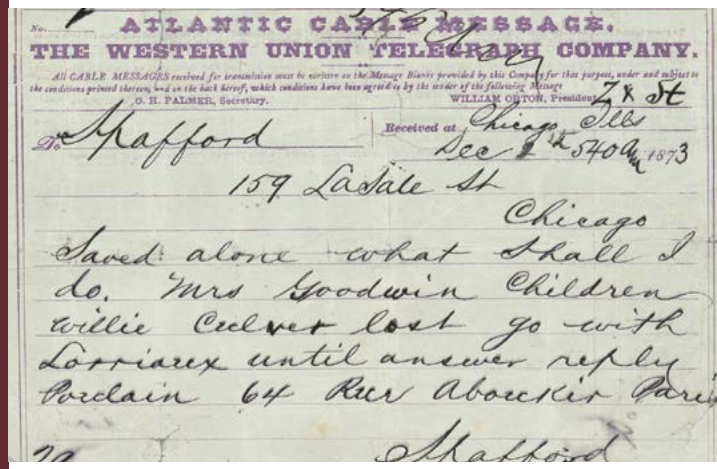 No.
ATLANTIC CABLE MESSAGE.
THE WESTERN UNION TELEGRAPH COMPANY.
All CABLE MESSAGES received for transmission must be written on the Message Blanks provided by this Company for that purpose, under and subject to
the conditions printed thereon, and on the back hereof, which conditions have been agreed to by the sender of the following Message
O. H. PALMER, Secretary. WILLIAM ORTON, President
To Spafford
Received at Chicago Ills
Dec 540 am 1873
159 LaSale St
Chicago
Saved alone what shall I
do. Mrs Goodwin Children
Willie Culver lost go with
Lorriaux until answer reply
Porclain 64 Rue Aboukir Paris
Spafford